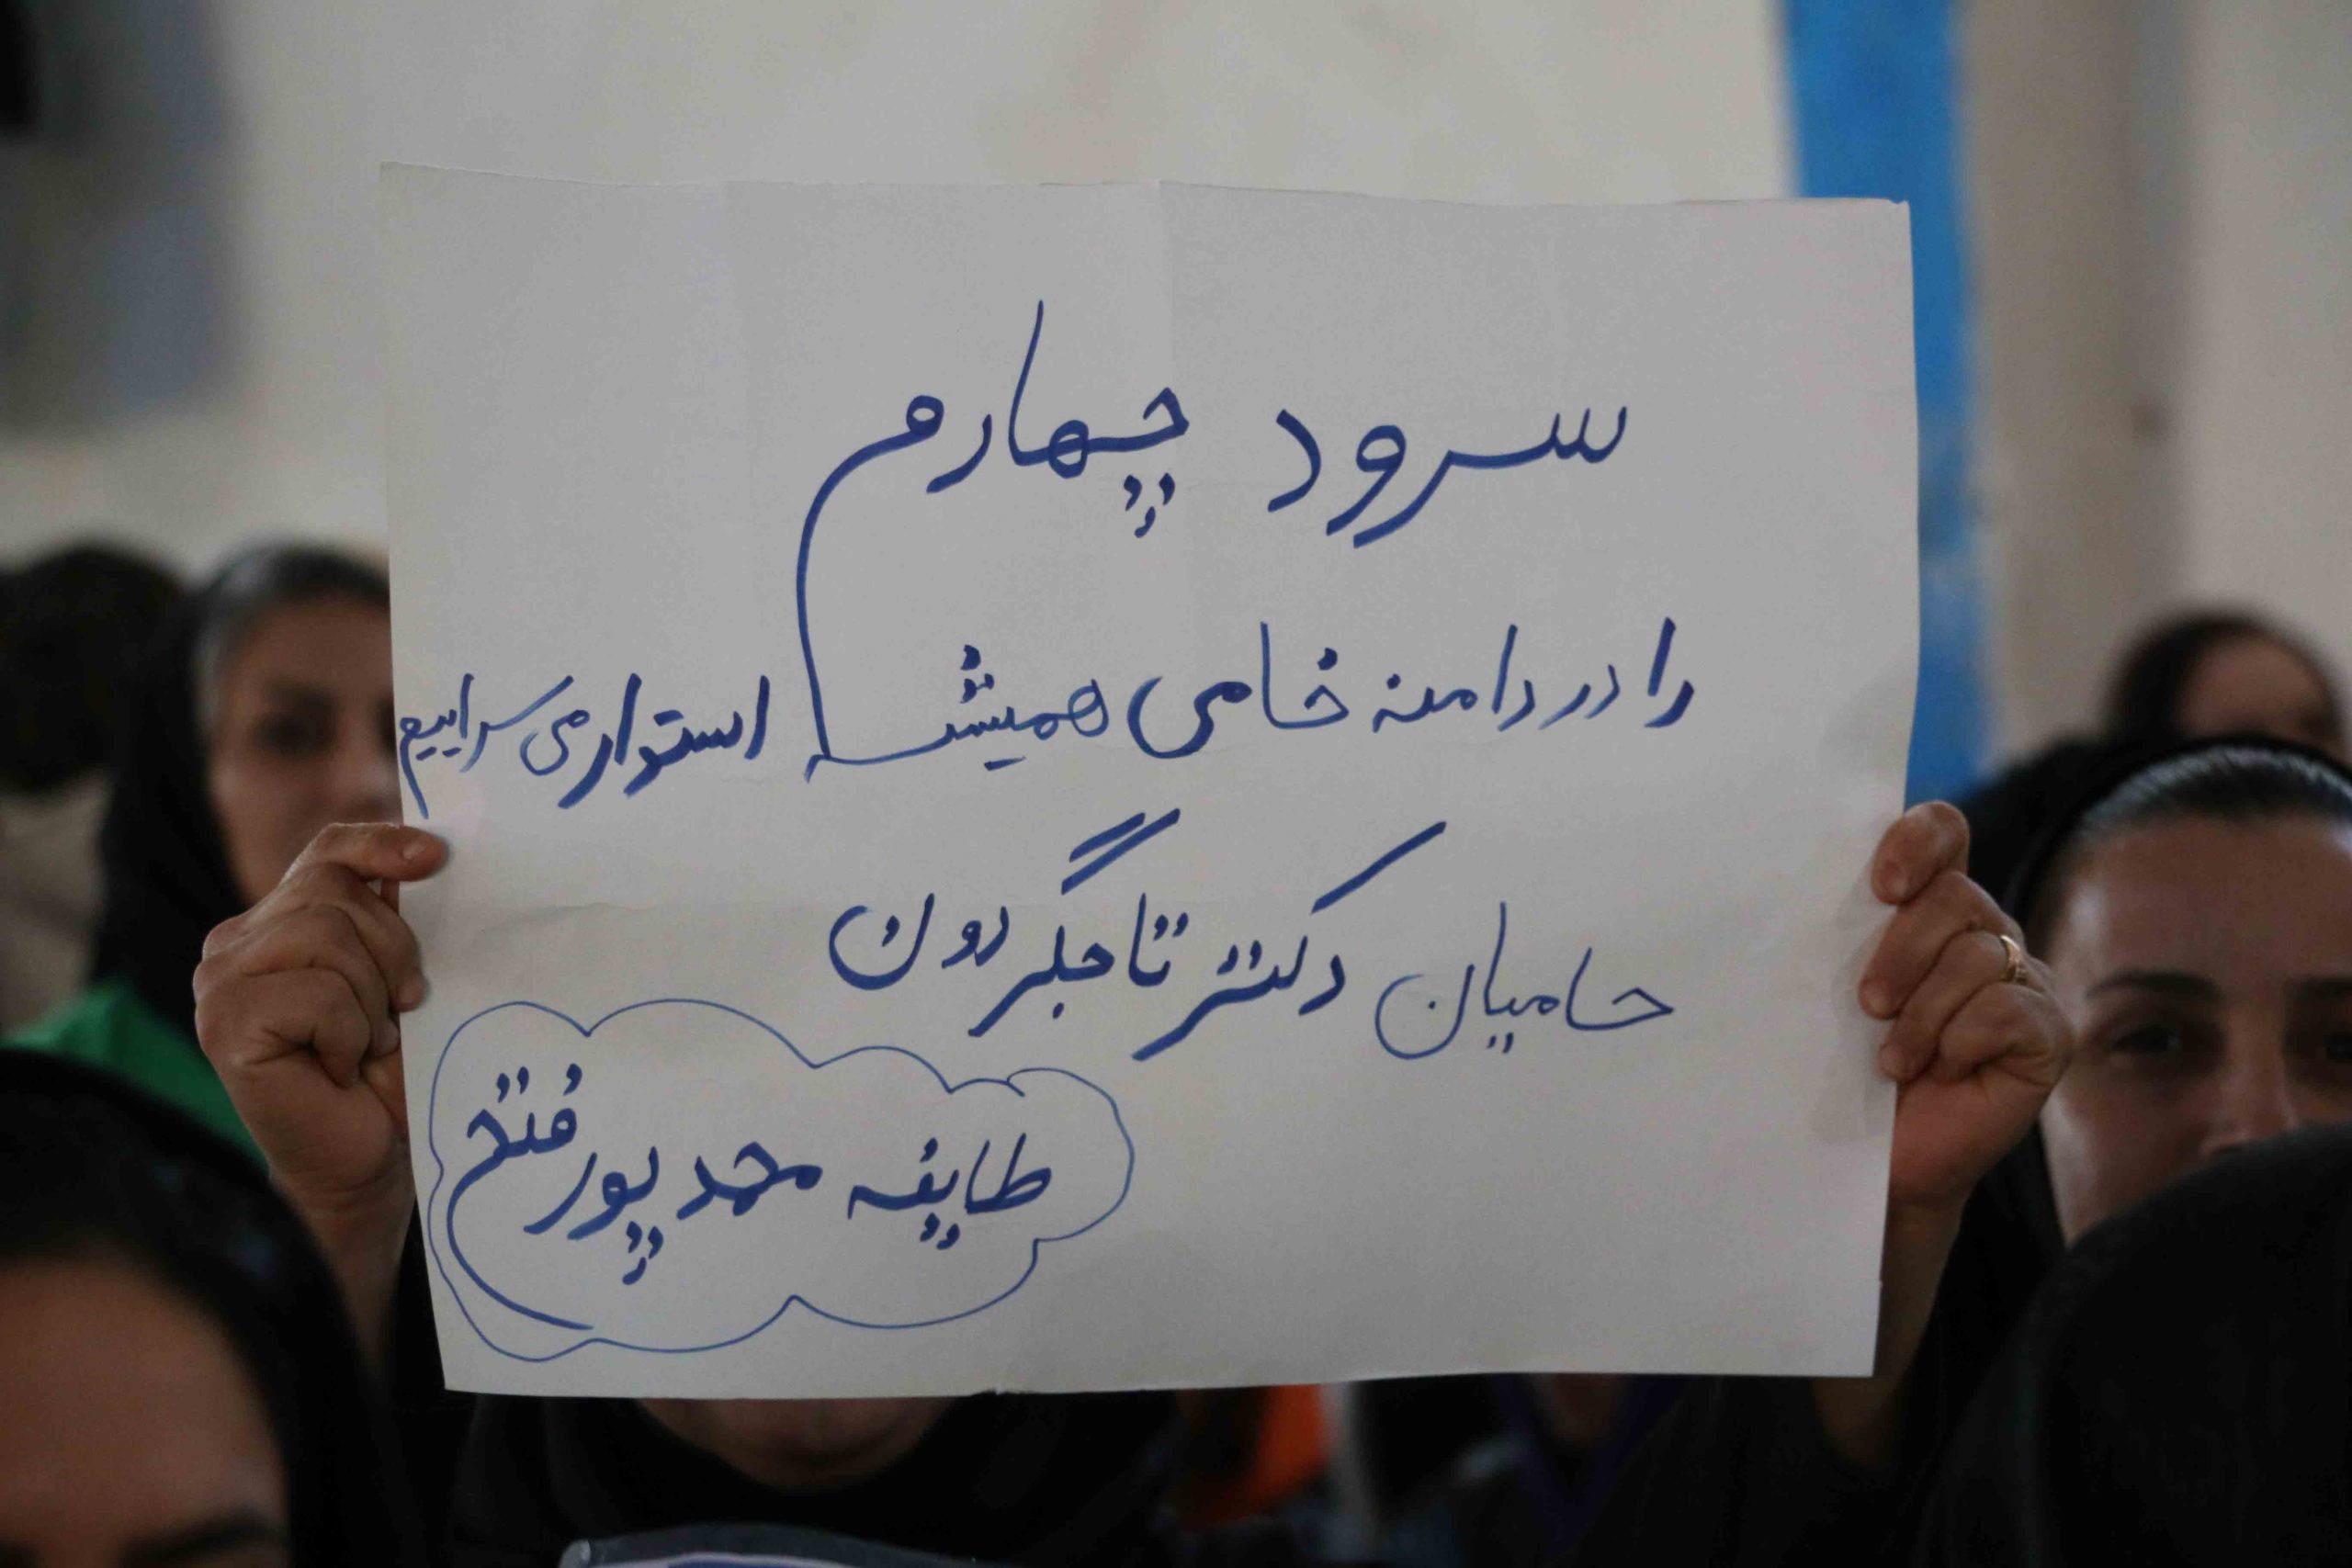 سرود چهارم
را در دامنه خامی همیشه استوار می سراییم
حامیان دکتر تاجگردون
طایفه محمد پور فتح